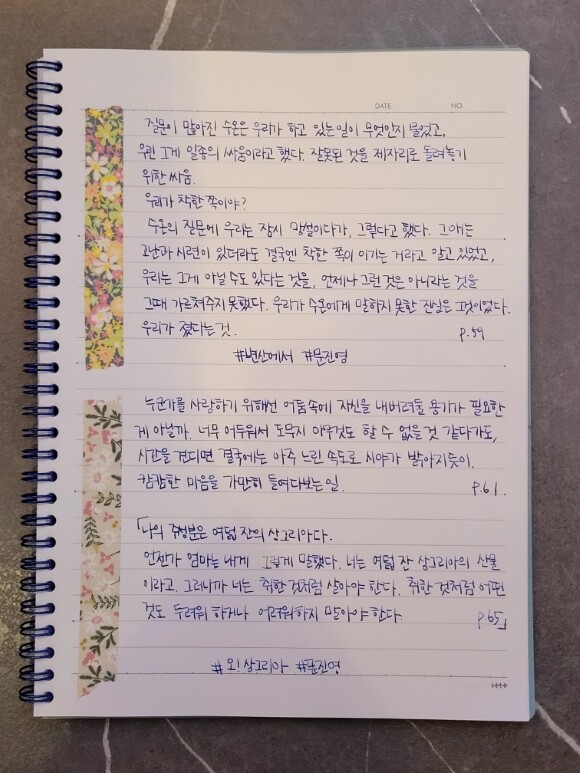 DATE. NO.
질문이 많아진 수온은 우리가 하고 있는 일이 무엇인지 물었고,
우린 그게 일종의 싸움이라고 했다. 잘못된 것을 제자리로 돌려놓기
위한 싸움.
우리가 착한 쪽이야?
수온의 질문에 우리는 잠시 망설이다가, 그렇다고 했다. 그 애는
고난과 시련이 있더라도 결국엔 착한 쪽이 이기는 거라고 알고 있었고,
우리는 그게 아닐 수도 있다는 것을, 언제나 그런 것은 아니라는 것을
그때 가르쳐주지 못했다. 우리가 수온에게 말하지 못한 진실은 그것이었다.
우리가 졌다는 것. p.59
#변산에서 #문진영
누군가를 사랑하기 위해선 어둠속에 자신을 내버려둘 용기가 필요한
게 아닐까. 너무 어두워서 도무지 아무것도 할 수 없을 것 같다가도,
시간을 견디면 결국에는 아주 느린 속도로 시야가 밝아지듯이.
캄캄한 마음을 가만히 들여다보는 일. p.61.
「나의 주성분은 여덟 잔의 상그리아다.
언젠가 엄마는 내게 그렇게 말했다. 너는 여덟 잔 상그리아의 산물
이라고. 그러니까 너는 취한 것처럼 살아야 한다. 취한 것처럼 어떤
것도 두려워 하거나 어려워하지 말아야 한다. p.65」
# 오! 상그리아 #문진영